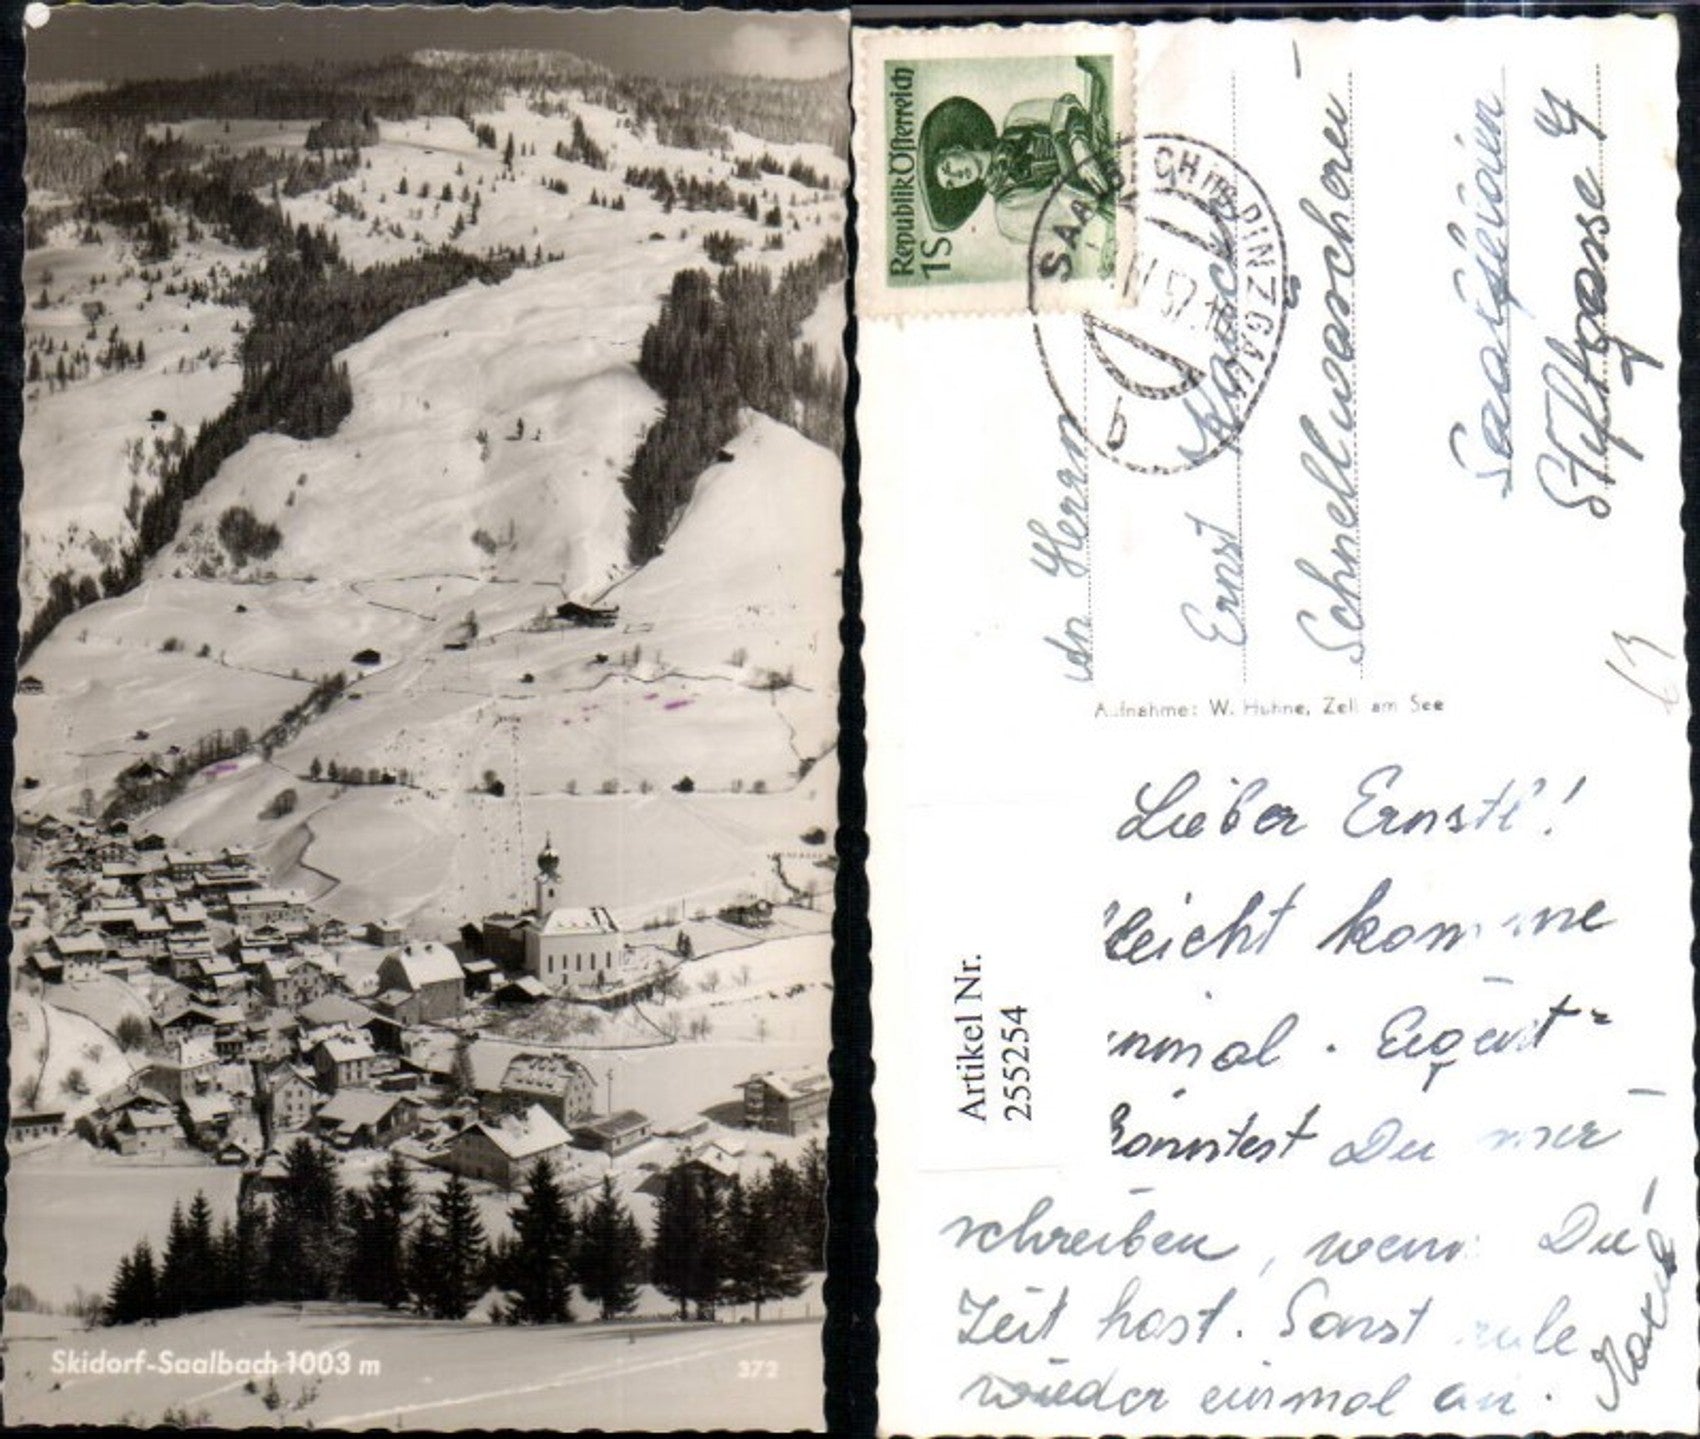 Skidorf-Saalbach 1003 m
372
Republik Österreich
1S
SAALBACH im PINZGAU
b
An Herrn
Ernst
Schnellwäscherei
Saalfelden
Stiftgasse 4
Aufnahme: W. Huhne, Zell am See
Artikel Nr.
255254
Lieber Ernstl!
komme
Eigent=
könntest Du mir
schreiben, wenn Du
Zeit hast. Sonst rufe
wieder einmal an.